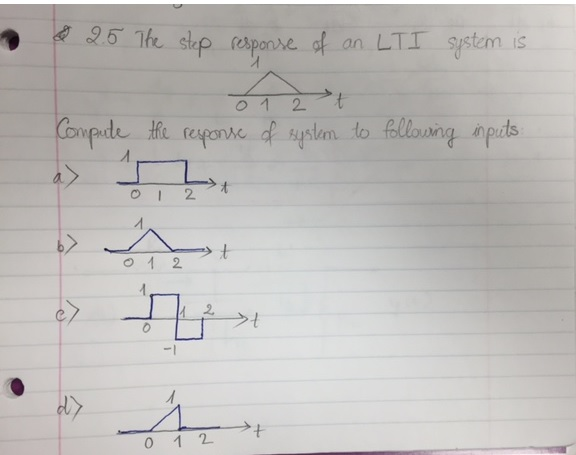 2.5 The step response of an LTI system is
1
0 1 2 t
Compute the response of system to following inputs:
a> 1
0 1 2 t
b> 1
0 1 2 t
c> 1
0 1 2 t
-1
d> 1
0 1 2 t